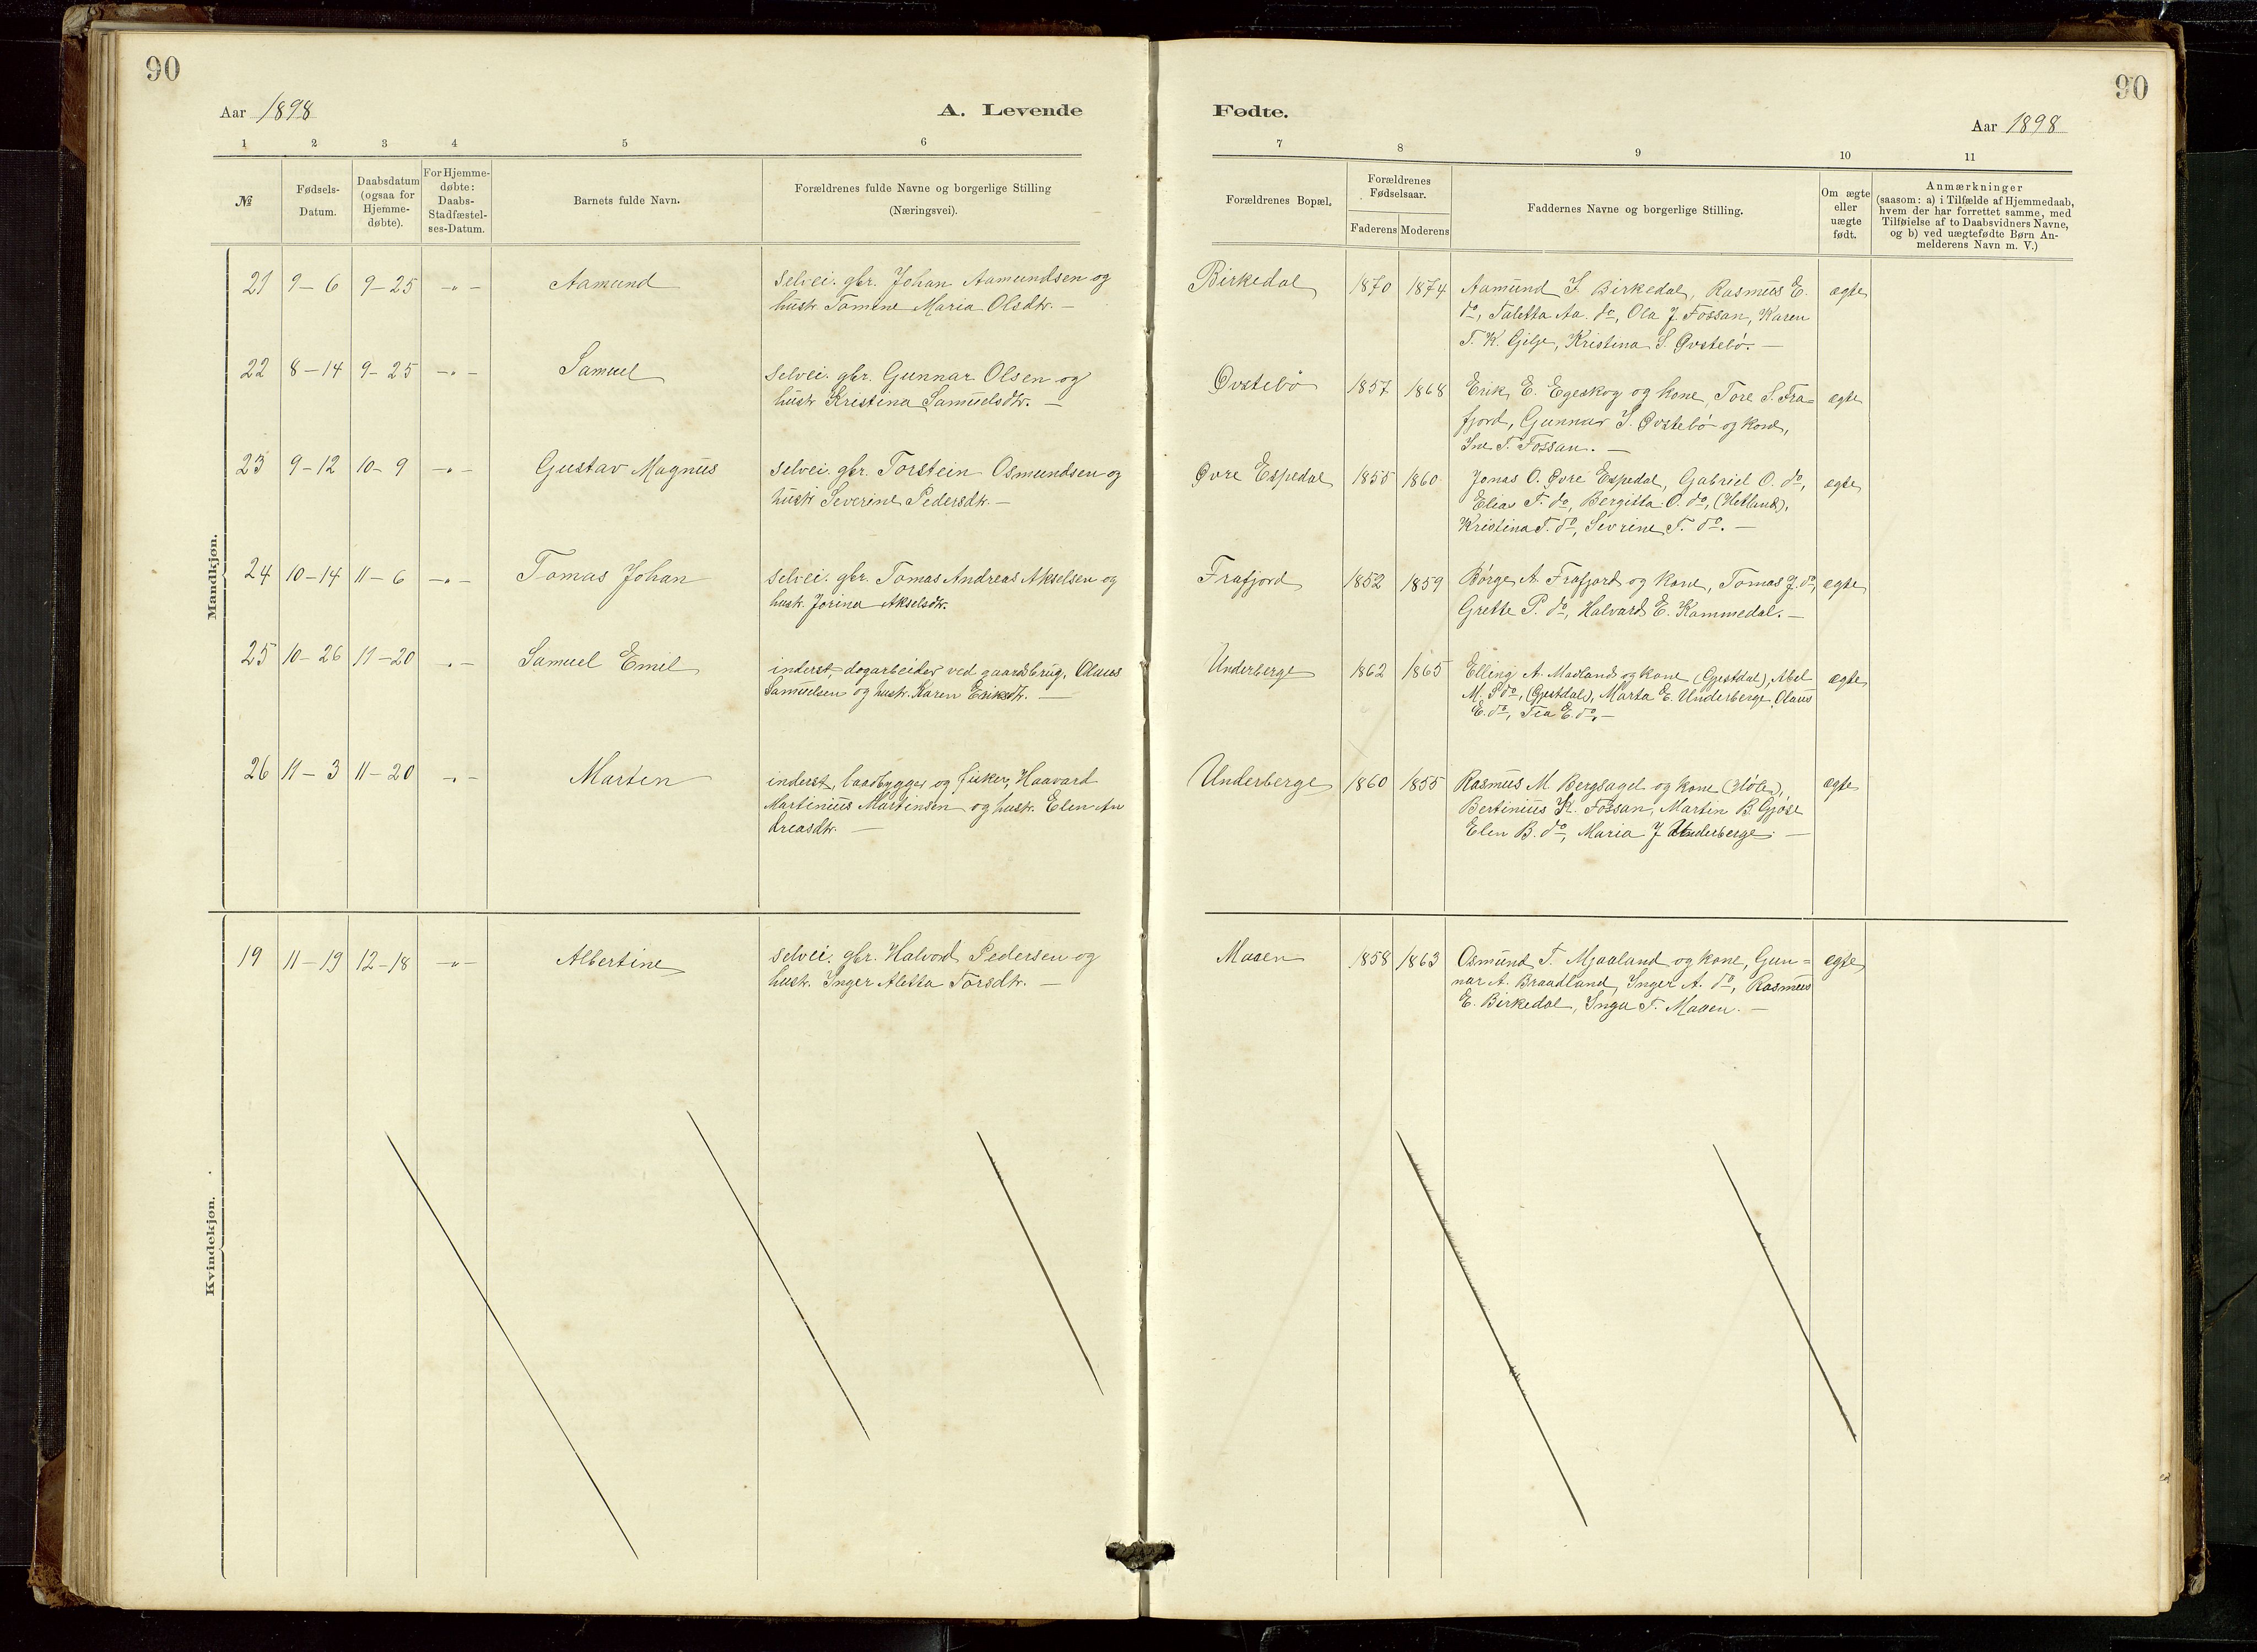 90
90
Aar 1898
A. Levende
Fødte.
Aar 1898
1 2 3 4 5 6
7 8 9 10 11
№
Fødsels-
Datum.
Daabsdatum
(ogsaa for
Hjemme-
døbte).
For Hjemme-
døbte:
Daabs-
Stadfæstel-
ses-Datum.
Barnets fulde Navn.
Forældrenes fulde Navne og borgerlige Stilling
(Næringsvei).
Forældrenes Bopæl.
Forældrenes
Fødselsaar.
Faderens Moderens
Faddernes Navne og borgerlige Stilling.
Om ægte
eller
uægte
født.
Anmærkninger
(saasom: a) i Tilfælde af Hjemmedaab,
hvem der har forrettet samme, med
Tilføielse af to Daabsvidners Navne,
og b) ved uægtefødte Børn An-
melderens Navn m. V.)
Mandkjøn.
21 9-6 9-25 -"- Aamund
selvei. gbr. Johan Aamundsen og
hustr. Tomine Maria Olsdtr. -
Birkedal 1870 1874
Aamund S. Birkedal, Rasmus E.
do, Taletta Aa. do, Ola J. Fossan, Karen
T. K. Gilje, Kristina S. Øvstebø. -
ægte
22 8-14 9-25 -"- Samuel
selvei. gbr. Gunnar Olsen og
hustr. Kristina Samuelsdtr. -
Øvstebø 1857 1868
Erik E. Egeskog og kone, Tore S. Fra=
fjord, Gunnar S. Øvstebø og kone,
Ine T. Fossan. -
ægte
23 9-12 10-9 -"- Gustav Magnus
selvei. gbr. Torstein Osmundsen og
hustr. Severine Pedersdtr. -
Øvre Espedal 1855 1860
Jonas O. Øvre Espedal, Gabriel O. do,
Elias T. do, Bergitta O. do, (Hetland),
Kristina T. do, Sevrine T. do. -
ægte
24 10-14 11-6 -"- Tomas Johan
selvei. gbr. Tomas Andreas Akselsen og
hustr. Jorina Akselsdtr.
Frafjord 1852 1859
Børge A. Frafjord og kone, Tomas J. do,
Grette P. do, Halvard E. Kommedal. -
ægte
25 10-26 11-20 -"- Samuel Emil
inderst, dagarbeider ved gaardsbrug, Olaus
Samuelsen og hustr. Karen Eriksdtr. -
Underberge 1862 1865
Elling A. Madland og kone (Gjestdal), Abel
M. S. do, (Gjestdal), Marta E. Underberge, Olaus
E. do, Tea E. do. -
ægte
26 11-3 11-20 -"- Marten
inderst, baadbygger og fisker, Haavard
Martinius Martinsen og hustr. Elen An
dreasdtr. -
Underberge 1860 1855
Rasmus M. Bergsagel og kone (Høle),
Bertinius K. Fossan, Martin B. Gjøse
Elen B. do, Maria J Underberge. -
ægte
Kvindekjøn.
19 11-19 12-18 -"- Albertine
selvei. gbr. Halvord Pedersen og
hustr. Inger Aletta Torsdtr. -
Maaen 1858 1863
Osmund T. Mjaaland og kone, Gun=
nar A. Braadland, Inger A. do, Rasmus
E. Birkedal, Inga T. Maaen. -
ægte